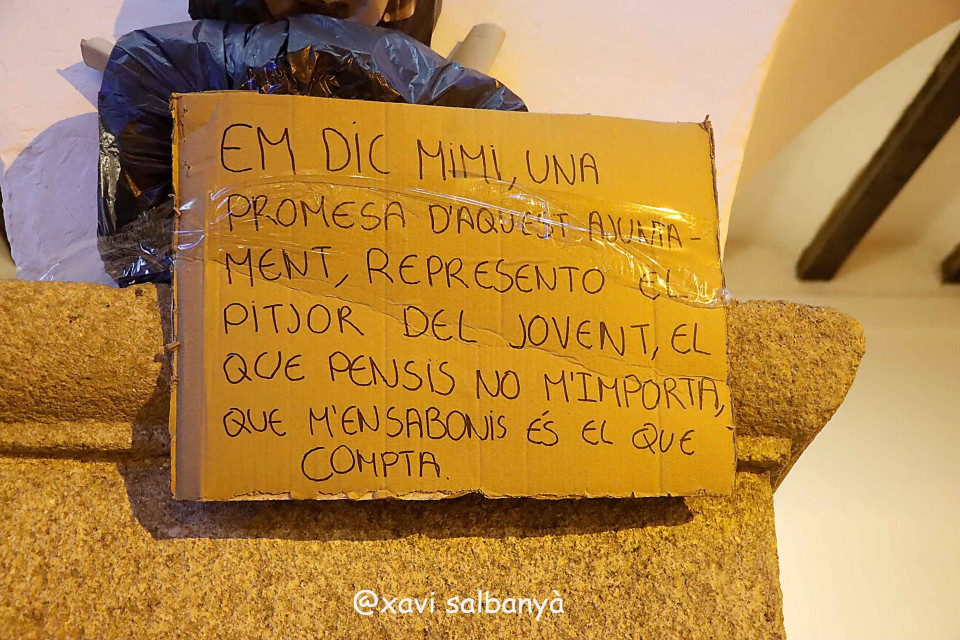 EM DIC MIMI, UNA
PROMESA D'AQUEST AJUNTA-
MENT, REPRESENTO EL
PITJOR DEL JOVENT, EL
QUE PENSIS NO M'IMPORTA,
QUE M'ENSABONIS ÉS EL QUE
COMPTA.
@xavi salbanyà